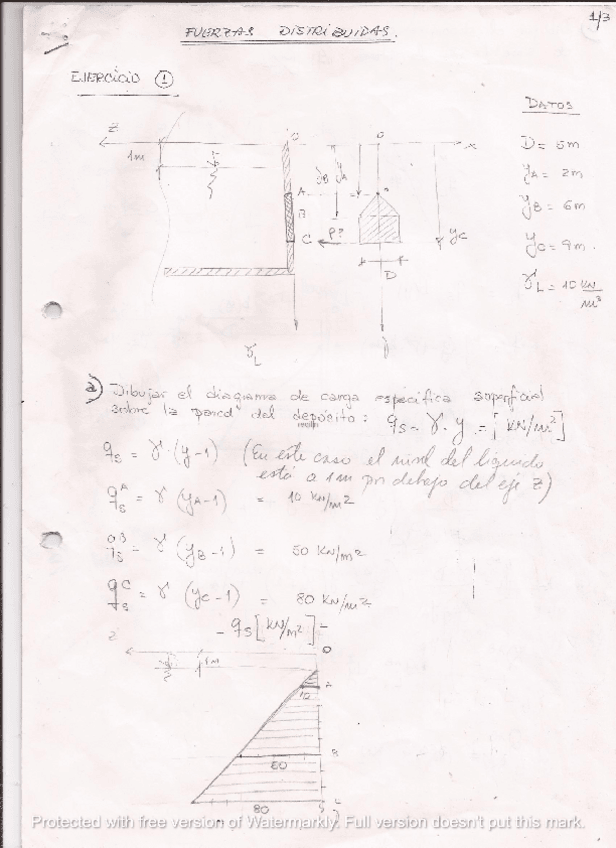 1/3
FUERZAS DISTRIBUIDAS.
EJERCICIO ①
DATOS
D = 5m
yA = 2m
yB = 6m
yC = 9m
γL = 10 KN/m³
z
1m
O
O
x
yB
yA
A
B
C
P?
yC
D
γL
a) Dibujar el diagrama de carga especifica superficial
sobre la pared del depósito: qs = γ · y = [KN/m²]
qs = γ · (y-1) (En este caso el nivel del liquido
está a 1m por debajo del eje Z)
qsA = γ (yA-1) = 10 KN/m²
qsB = γ (yB-1) = 50 KN/m²
qsC = γ (yC-1) = 80 KN/m²
- qs [KN/m²]
z
1m
O
A
10
B
50
80
Protected with free version of Watermarkly. Full version doesn't put this mark.